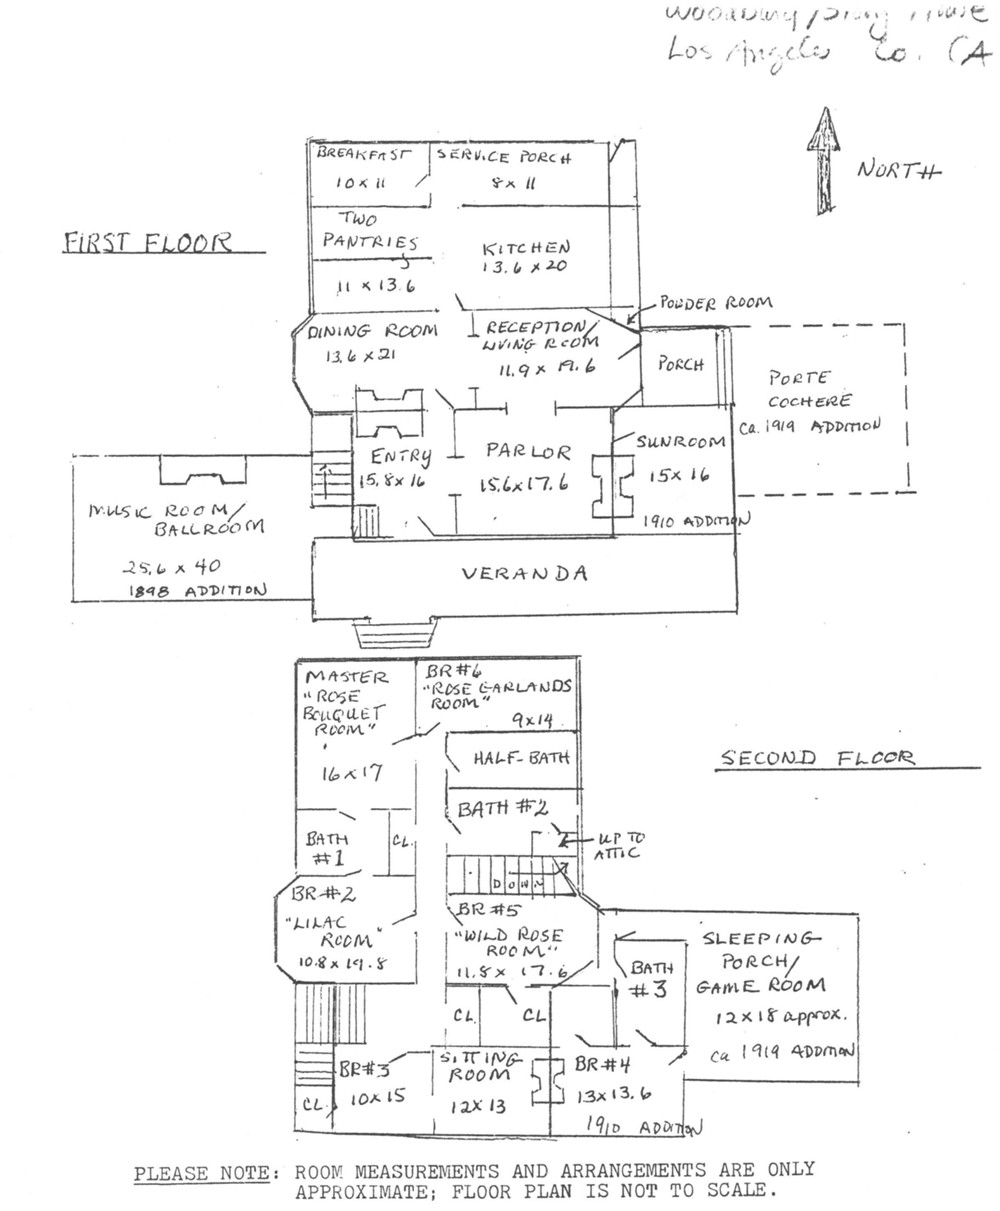 Woodbury/Story House
Los Angeles Co. CA
NORTH
FIRST FLOOR
BREAKFAST
10 x 11
SERVICE PORCH
8 x 11
TWO
PANTRIES
11 x 13.6
KITCHEN
13.6 x 20
POWDER ROOM
DINING ROOM
13.6 x 21
RECEPTION/
LIVING ROOM
11.9 x 19.6
PORCH
PORTE
COCHERE
ca. 1919 ADDITION
ENTRY
15.8 x 16
PARLOR
15.6 x 17.6
SUNROOM
15 x 16
1910 ADDITION
MUSIC ROOM/
BALLROOM
25.6 x 40
1898 ADDITION
VERANDA
MASTER
"ROSE
BOUQUET
ROOM"
16 x 17
BR #6
"ROSE GARLANDS
ROOM"
9 x 14
SECOND FLOOR
HALF-BATH
BATH #2
UP TO
ATTIC
BATH
#1
CL.
DOWN
BR #2
"LILAC
ROOM"
10.8 x 19.8
BR #5
"WILD ROSE
ROOM"
11.8 x 17.6
BATH
#3
SLEEPING
PORCH/
GAME ROOM
12 x 18 approx.
ca 1919 ADDITION
CL.
CL.
BR #3
10 x 15
CL.
SITTING
ROOM
12 x 13
BR #4
13 x 13.6
1910 ADDITION
PLEASE NOTE: ROOM MEASUREMENTS AND ARRANGEMENTS ARE ONLY
APPROXIMATE; FLOOR PLAN IS NOT TO SCALE.